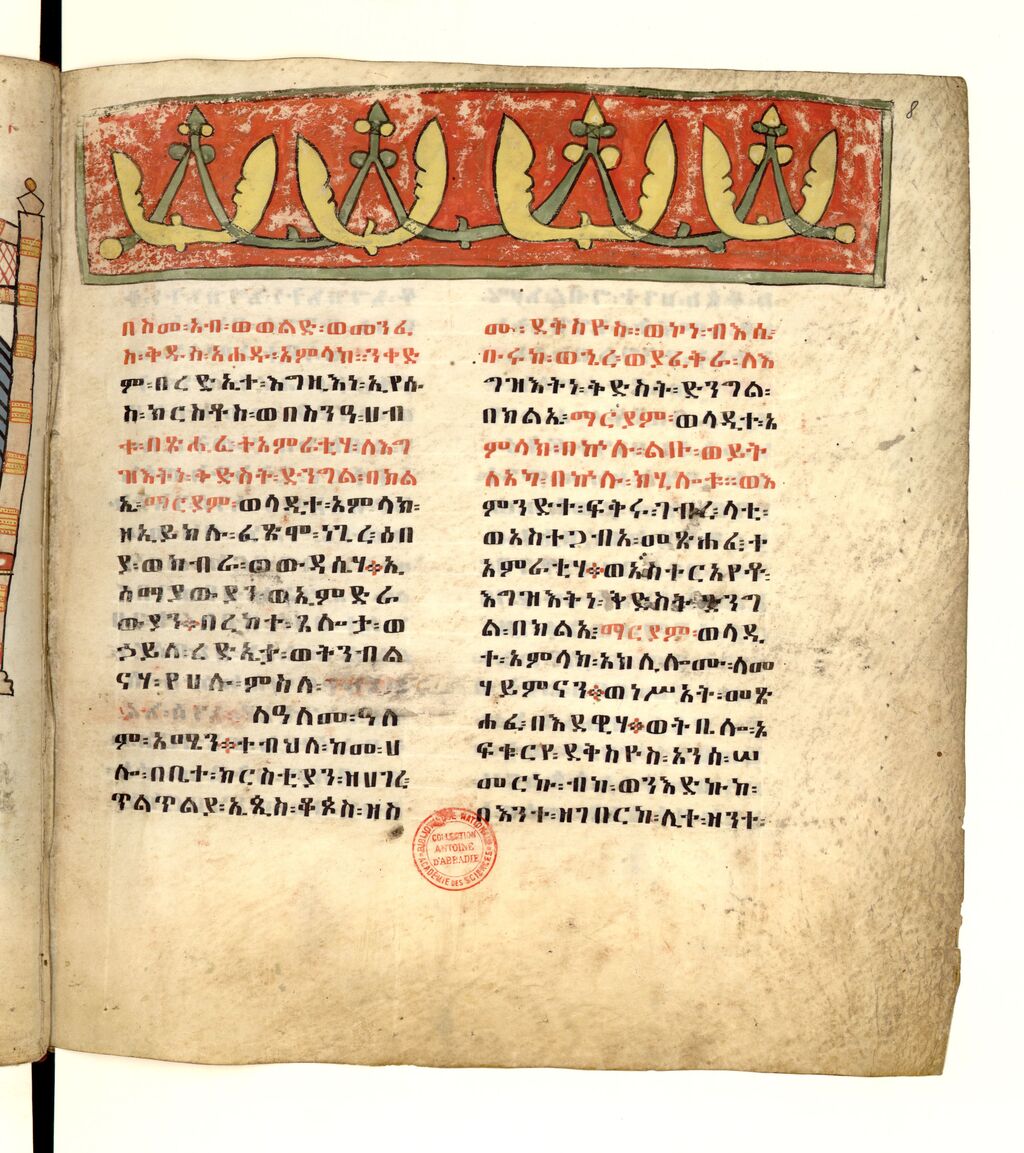 8
በስመ፡አብ፡ወወልድ፡ወመንፈ
ስ፡ቅዱስ፡አሐዱ፡አምላክ፡ንቀድ
ም፡በረድኤተ፡እግዚእነ፡ኢየሱ
ስ፡ክርስቶስ፡ወበስንዓ፡ሀብ
ቱ፡በጽሒፈ፡ተአምራቲሃ፡ለእግ
ዝእትነ፡ቅድስት፡ድንግል፡በክል
ኤ፡ማርያም፡ወላዲተ፡አምላክ፡
ዘኢይክሉ፡ፈጽሞ፡ነጊረ፡ዕበ
ያ፡ወክብራ፡ወውዳሴሃ፡ኢ
ሰማያውያን፡ወኢምድራ
ውያን፡በረከተ፡ጼሎታ፡ወ
ኃይለ፡ረድኤታ፡ወትንብል
ናሃ፡የሀሉ፡ምስለ፡
ለዓለመ፡ዓለ
ም፡አሜን፡ተብህለ፡ከመ፡ሀ
ሎ፡በቤተ፡ክርስቲያን፡ዘሀገረ፡
ጥልጥልያ፡ኤጲስ፡ቆጶስ፡ዘስ
ሙ፡ደቅስዮስ፡ወኮነ፡ብእሴ፡
ቡሩክ፡ወኄረ፡ወያፈቅራ፡ለእ
ግዝእትነ፡ቅድስት፡ድንግል፡
በክልኤ፡ማርያም፡ወላዲተ፡አ
ምላክ፡በኵሉ፡ልቡ፡ወይት
ለአካ፡በኵሉ፡ክሂሎቱ፡ወእ
ምንድተ፡ፍቅሩ፡ገብረ፡ላቲ፡
ወአስተጋብአ፡መጽሐፈ፡ተ
አምራቲሃ፡ወአስተርአየቶ፡
እግዝእትነ፡ቅድስት፡ድንግ
ል፡በክልኤ፡ማርያም፡ወላዲ
ተ፡አምላክ፡አህሊሎሙ፡ለመ
ሃይምናን፡ወነሥአት፡መጽ
ሐፈ፡በእደዊሃ፡ወትቤሎ፡ኦ
ፍቁርየ፡ደቅስዮስ፡አንሰ፡ሠ
መርኩ፡ብከ፡ወንእድኩከ፡
በእንተ፡ዘገበርከ፡ሊተ፡ዘንተ፡
BIBLIOTHEQUE NATIONALE
COLLECTION
ANTOINE
D'ABBADIE
ACADÉMIE DES SCIENCES